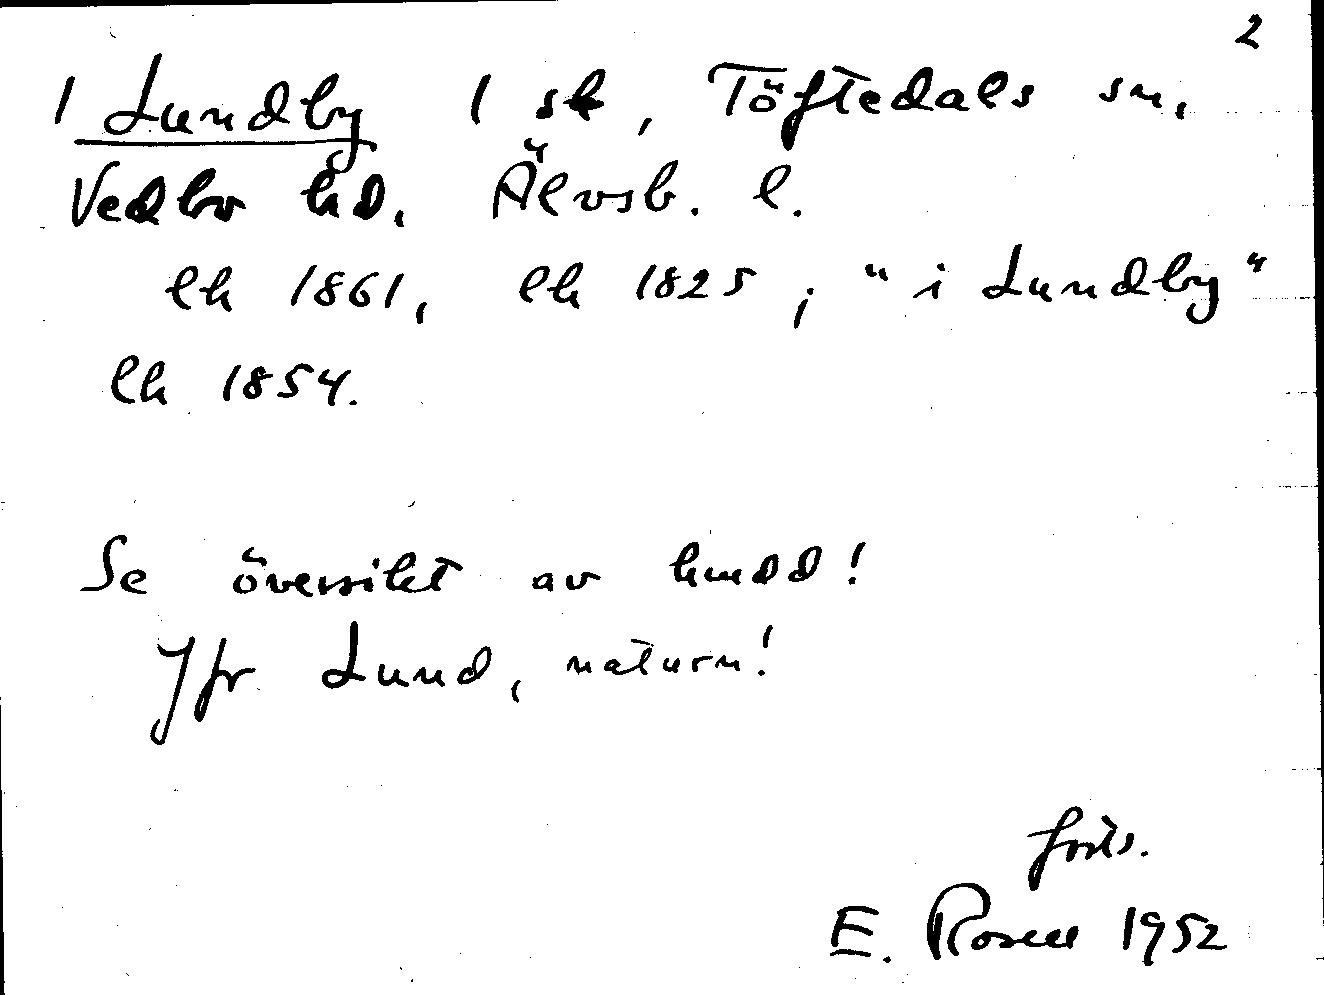 2
1 Lundby 1 sk, Töftedals sn,
Vedbo hd, Älvsb. l.
lh 1861, lh 1825; "i Lundby"
lh 1854.
Se översikt av hmdd!
Jfr Lund, naturn!
forts.
E. Rosell 1952